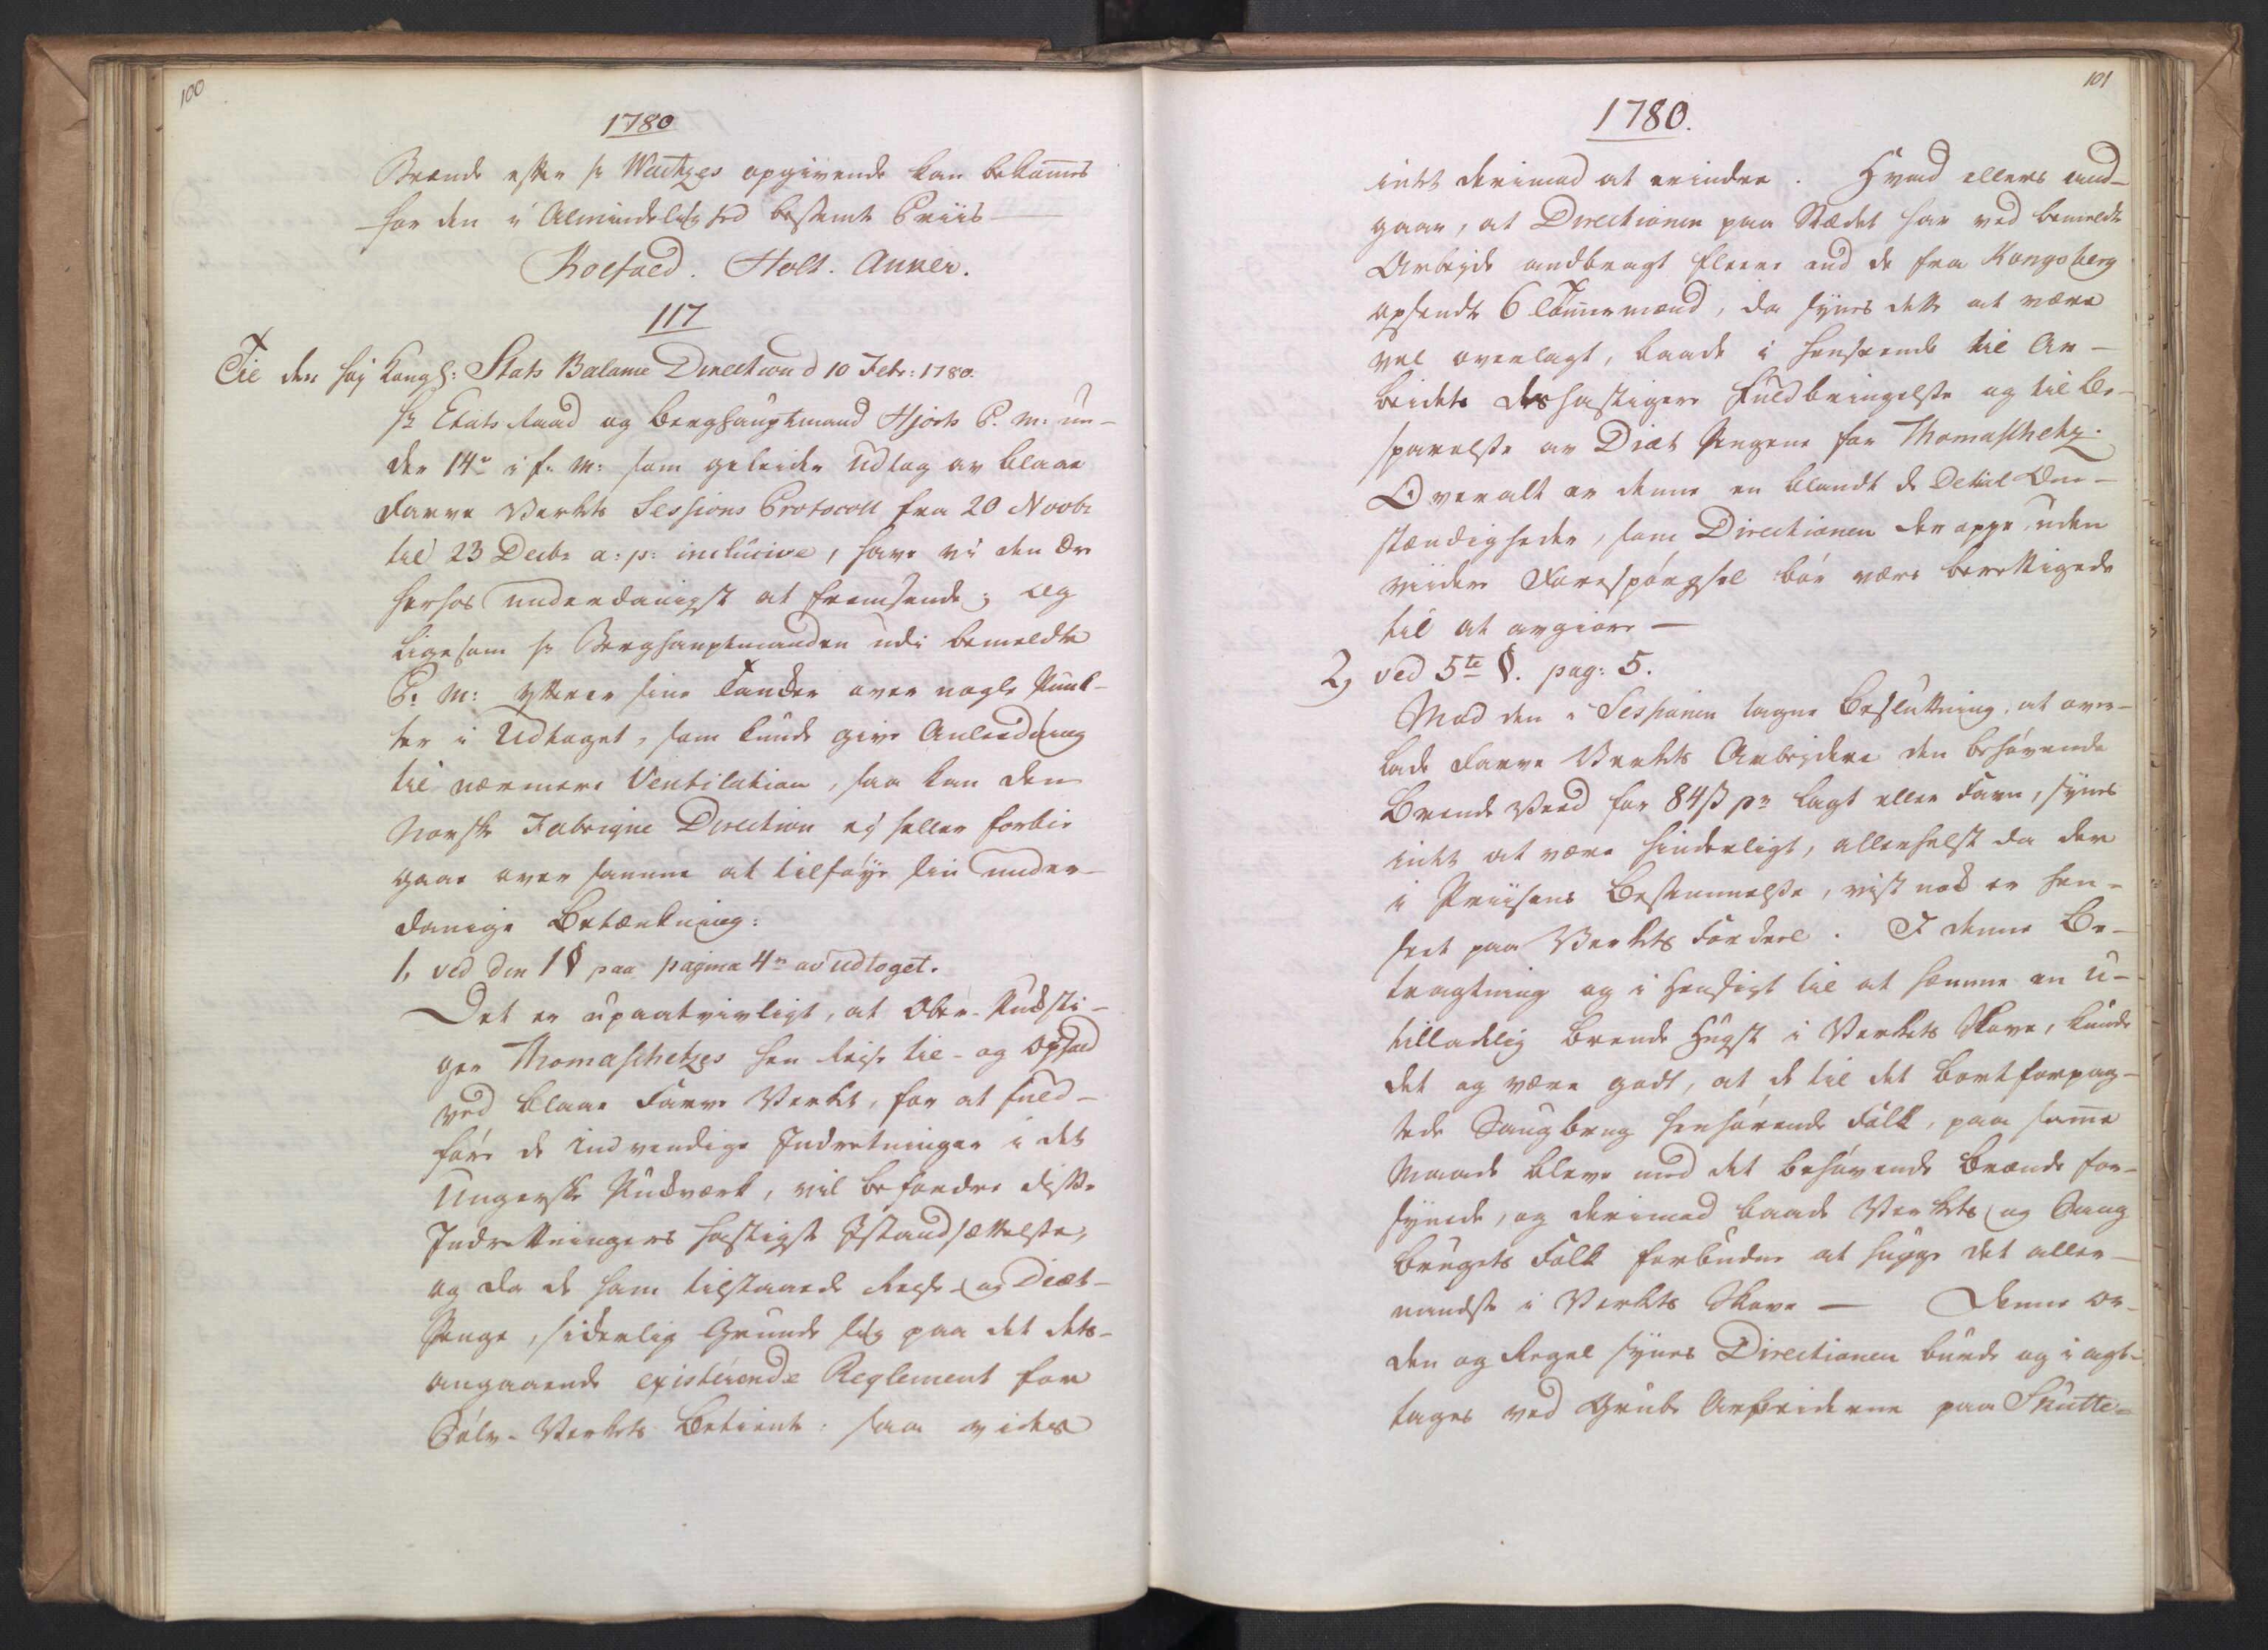 100
1780
Brænde efter hr Waitzes opgivende kan bekomes
for den i Almindelighed bestemte Priis
Roefoed. Holt. Anker.
117
Til den høj Kongl: Stats Balance Direction d 10 Febr: 1780.
hr Etats Raad og Berghauptmand Hjorts P. M: un-
der 14de i f. M: som geleider Udtog av blaae
Farve Verkets Sessions Protocoll fra 20 Novbr
til 23 Decbr a: p: inclusive, have vi den Ær
herhos underdanigst at fremsende; og
ligesom hr Berghauptmanden udi bemeldte
P. M: yttrer sine Tanker over nogle Punk-
ter i Udtoget, som kunde give Anleedning
til nærmere Ventilation, saa kan den
Norske Fabrique Direction ej heller forbie
gaae over samme at tilføye sin under-
danige Betænkning:
1, ved den 1 § paa pagina 4de av udtoget.
Det er upaatvivligt, at Ober-Puchsti-
ger Thomaschetzes hen Reise til- og Ophold
ved blaae Farve Verket, for at fuld-
føre de indvendige Indretninger i det
Ungerske Puchverk, vil befordre disse
Indretningers hastigste Istandsættelse,
og da de ham tilstaaede Reise- og Diæt-
Penge, siderlig Grunde sig paa det dets-
angaaende existerende Reglement for
Sølv-Verkets Betiente: saa vides
101
1780.
intet derimod at erindre. Hvad ellers and-
gaar, at Directionen paa Stædet har ved bemeldte
Arbeyde andbragt fleere end de fra Kongsberg
opsendte 6 Tømmermænd, da synes dette at være
vel overlagt, baade i henseende til Ar-
beidets deshastigere Fuldbringelse og til Be-
sparelse av Diæt Pengene for Thomaschetz.
Overalt er denne en blandt de Detail Om-
stændigheder, som Directionen deroppe uden
viidere Forespørgsel bør være berettigede
til at avgiøre —
2, ved 5te §. pag: 5.
Mod den i Sessionen tagne Beslutning, at over-
lade Farve Verkets Arbeydere den behøvende
Brende Veed for 84 ß pr lagt eller Favn, synes
intet at være hinderligt, allerhelst da der
i Priisens Bestemmelse, vist nok er hen-
seet paa Verkets Fordeel. I denne Be-
tragtning og i Hensigt til at hemme en u-
tilladelig Brende Hugst i Verkets Skove, kunde
det og være godt, at de til det bortforpag-
tede Saugbrug henhørende Folk, paa same
Maade bleve med det behøvende Brænde for-
synede, og derimod baade Verkets og Saug
brugets Folk forbudne at hugge det aller-
mindste i Verkets Skove — Denne Or-
den og Regel synes Directionen burde og i agt-
tages ved Grube Arbeiderne paa Skutte-